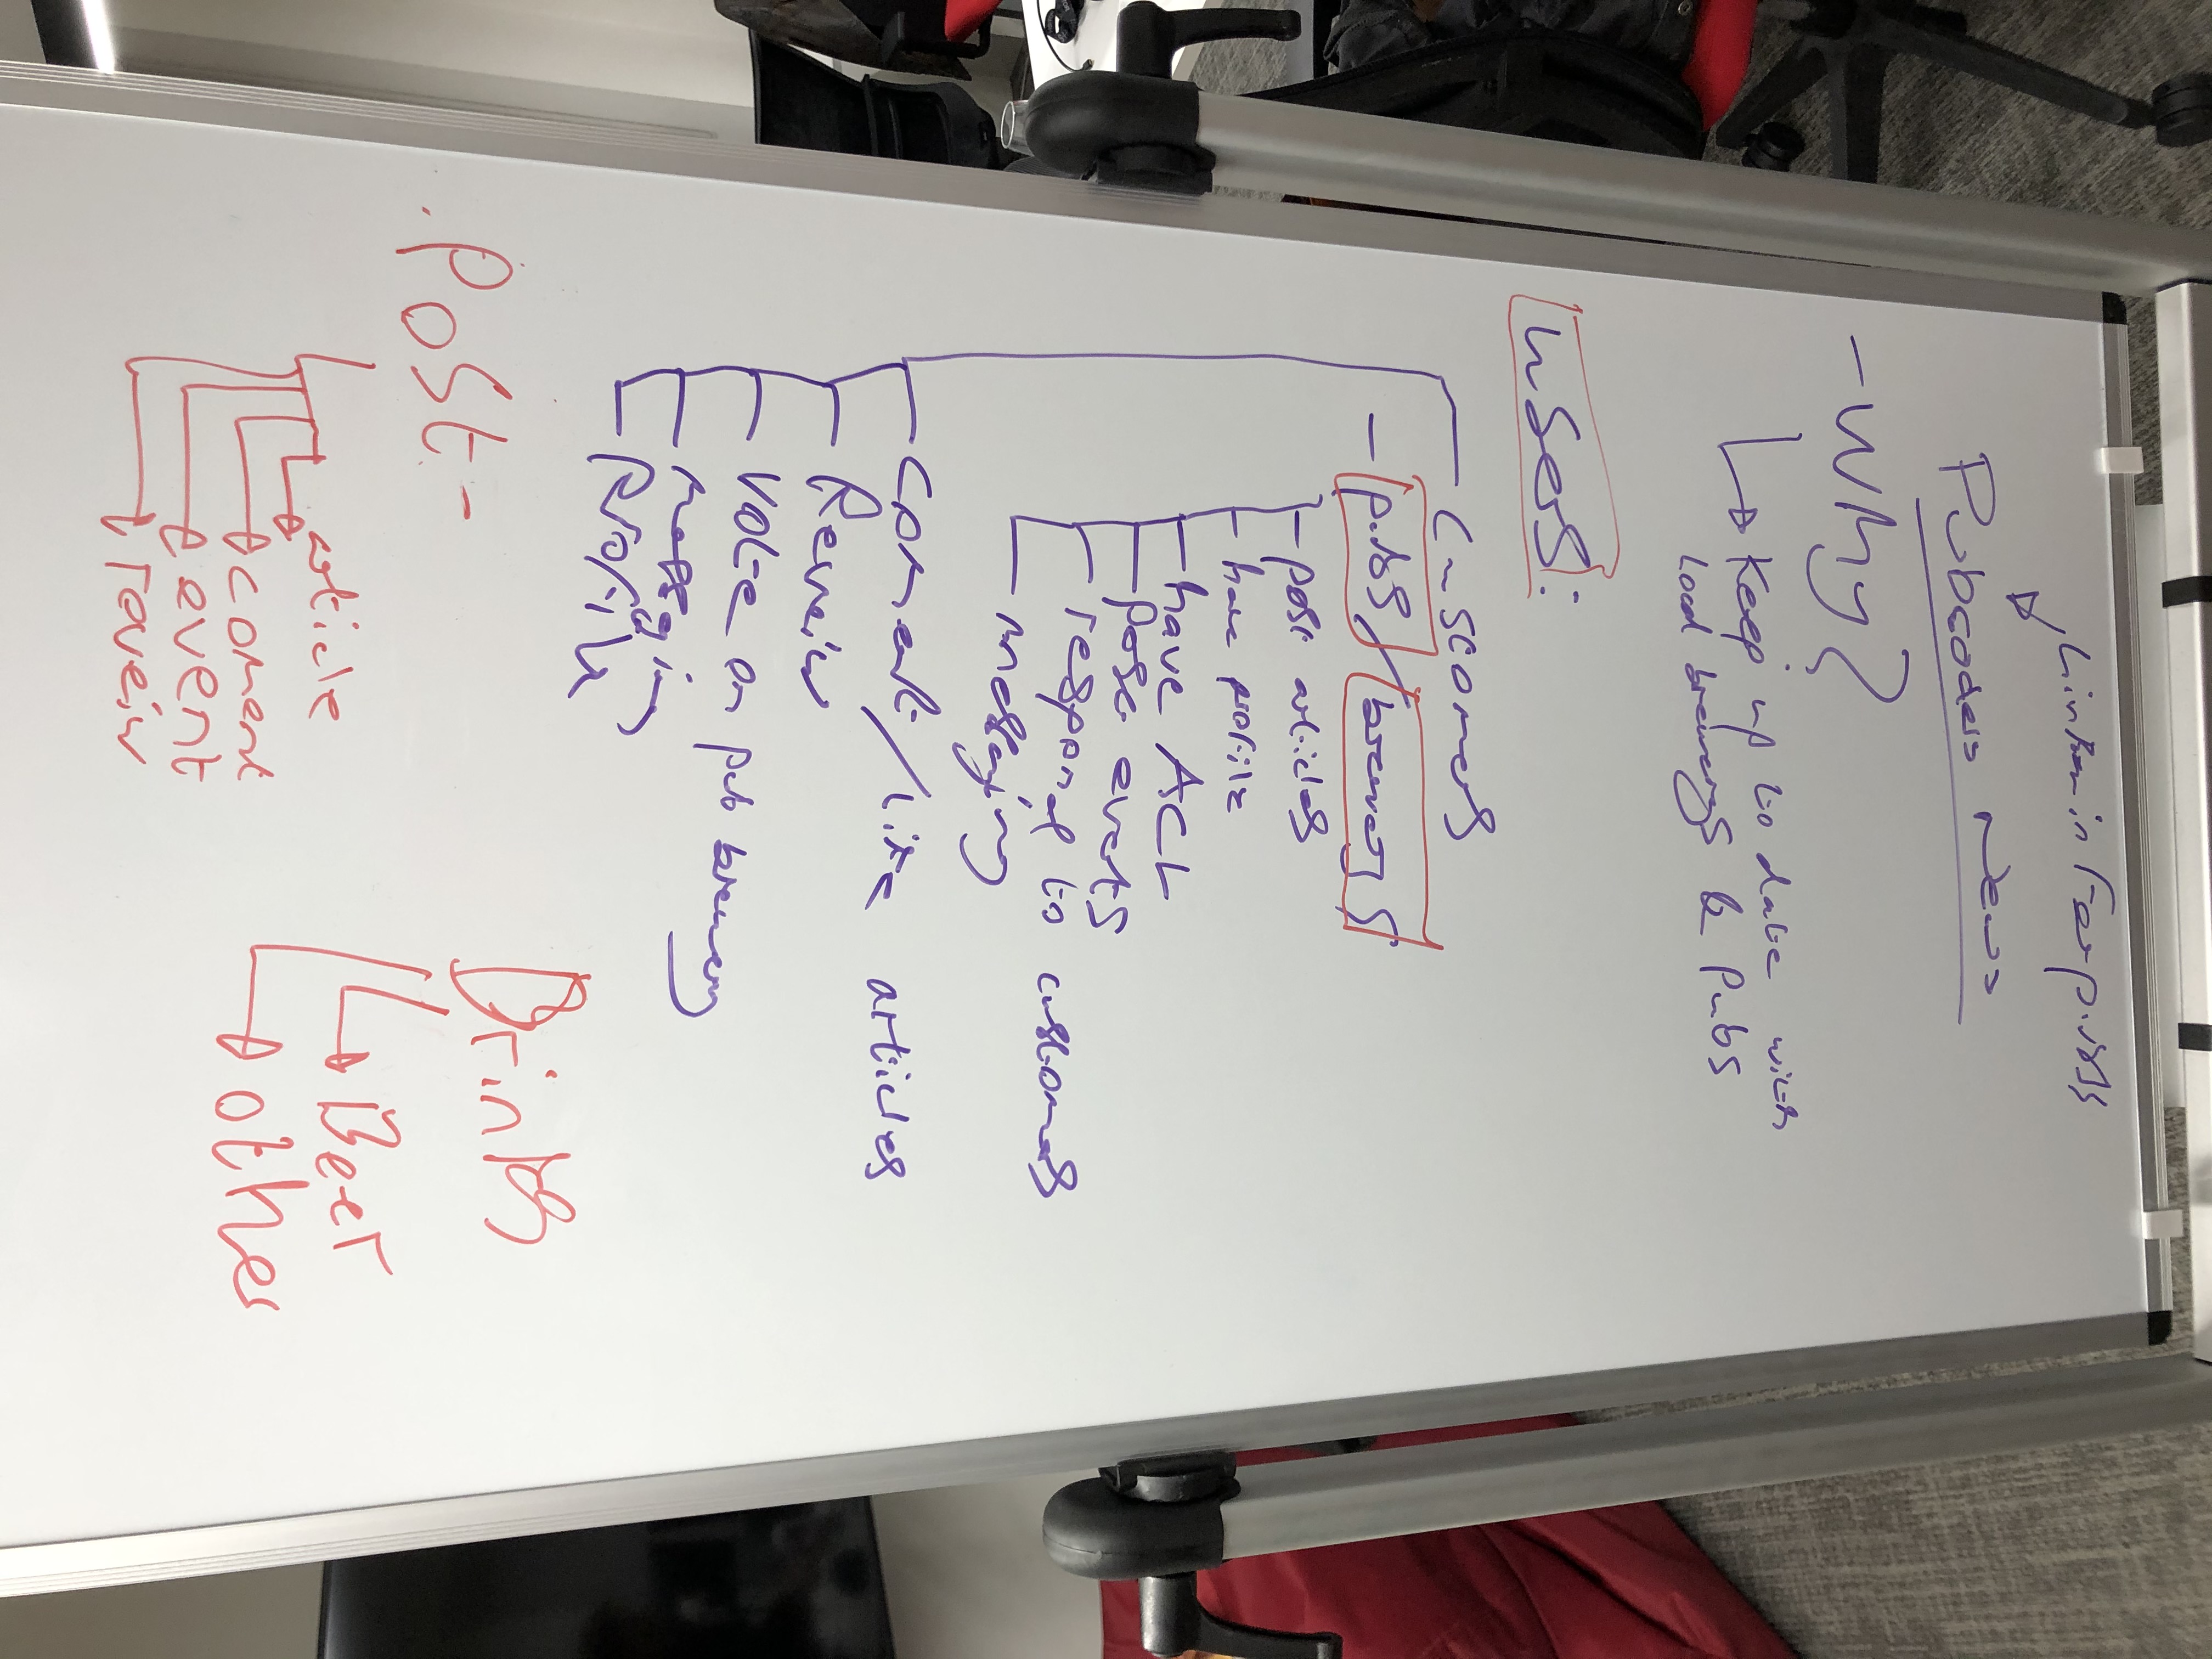 Linkedin for pubs
Pubcoders News
- Why?
Keep up to date with
Local brewerys & Pubs
Users:
Customers
- pubs / brewerys
- post articles
- have profile
- have ACL
- post events
- respond to customers
- messaging
- coment / Like articles
- Reveiw
- Vote on pub brewery
- messaging
- Profile
Post -
article
coment
event
reveiw
Drinks
Beer
other